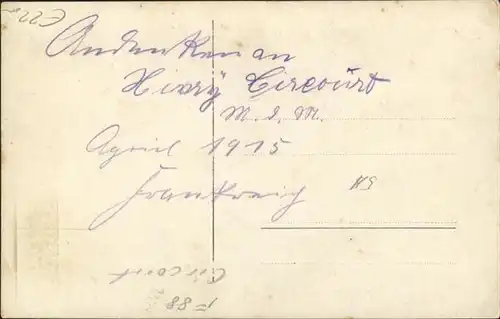 Andenken an
Xivrÿ Circourt
M. d. M.
April 1915
Frankreich
Circourt
F 88